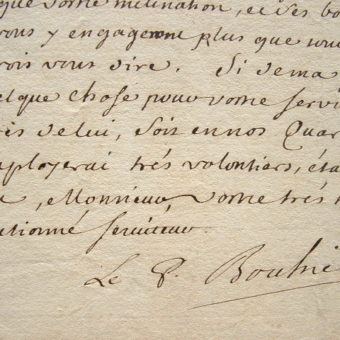 que votre inclination, et ses bo
vous y engageront plus que tou
rois vous dire. Si de ma
elque chose pour votre servi
rés de lui, soit en nos Quar
mployerai trés volontiers, éta
, Monsieur, votre trés
ctionné serviteur.
Le P.